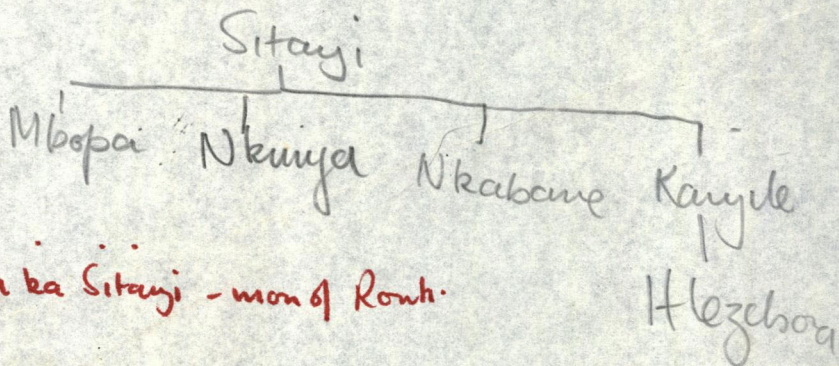 Sitayi
Mbopa Nkunya Nkabane Kanyile
Hlezebona
ka Sitayi - mon of Ronh.